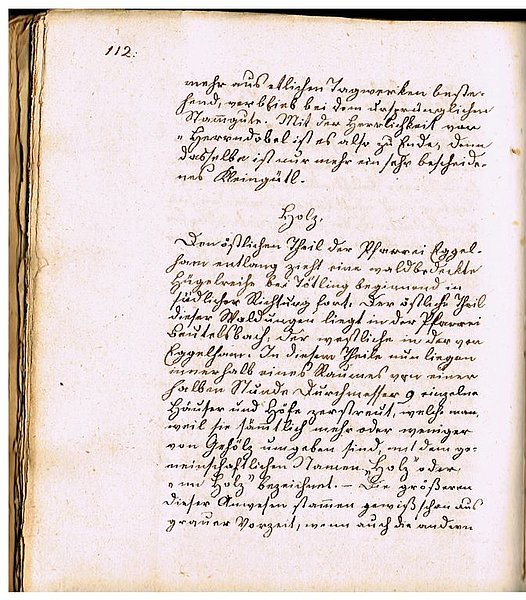 112.
mehr aus etlichen Tagwerken beste-
hend, verblieb bei dem ursprünglichen
Stammgute. Mit der Herrlichkeit von
"Herrndobel ist es also zu Ende, denn
dasselbe ist nur mehr ein sehr bescheide-
nes Kleingütl.
Holz.
Den östlichen Theil der Pfarrei Eggel-
ham entlang zieht eine waldbedeckte
Hügelreihe bei Tötling beginnend in
südlicher Richtung fort. Der östliche Theil
dieser Waldungen liegt in der Pfarrei
Beutelsbach, der westliche in der von
Eggelham. In diesem Theile nun liegen
innerhalb eines Raumes von einer
halben Stunde Durchmesser 9 einzelne
Häuser und Höfe zerstreut, welche man,
weil sie sämmtlich mehr oder weniger
von Gehölz umgeben sind, mit dem ge-
meinschaftlichen Namen „Holz" oder
„im Holz" bezeichnet. – Die größeren
dieser Anwesen stammen gewiß schon aus
grauer Vorzeit, wenn auch die andern